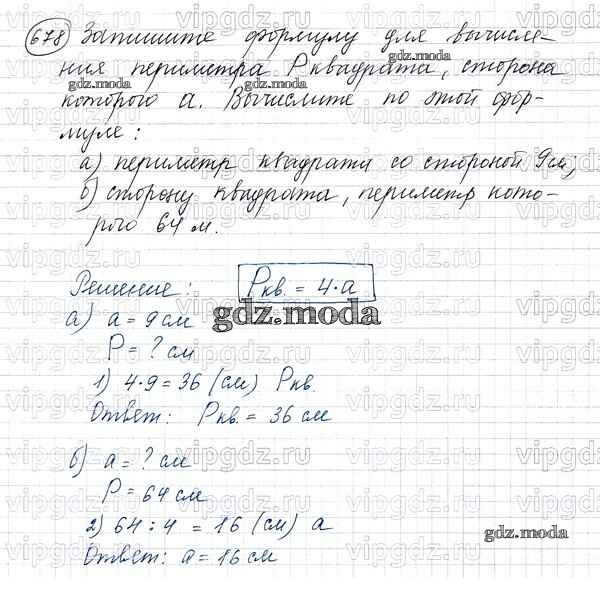 678 Запишите формулу для вычисле-
ния периметра P квадрата, сторона
которого a. Вычислите по этой фор-
муле:
а) периметр квадрата со стороной 9 см,
б) сторону квадрата, периметр кото-
рого 64 м.
Решение: Pкв. = 4·a
а) a = 9 см
P = ? см
1) 4·9 = 36 (см) Pкв.
Ответ: Pкв. = 36 см
б) a = ? см
P = 64 см
2) 64 : 4 = 16 (см) a
Ответ: a = 16 см
gdz.moda
vipgdz.ru